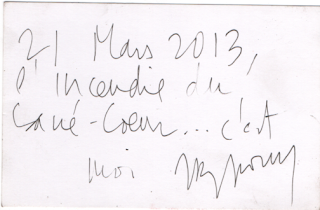 21 Mars 2013,
l'incendie du
Carré-Coeur... c'est
moi